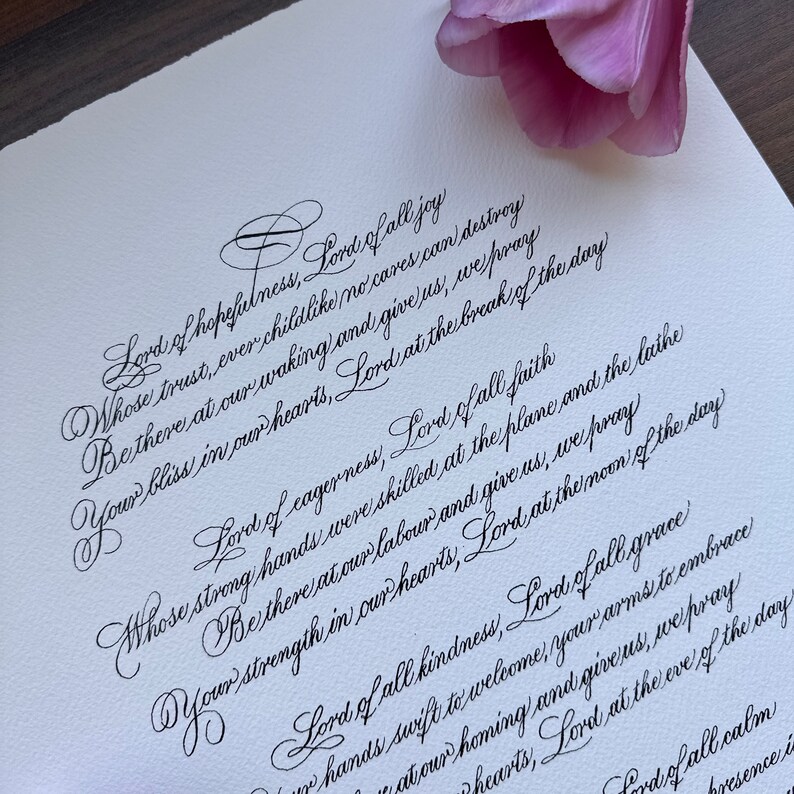 Lord of hopefulness, Lord of all joy
Whose trust, ever childlike no cares can destroy
Be there at our waking and give us, we pray
Your bliss in our hearts, Lord at the break of the day
Lord of eagerness, Lord of all faith
Whose strong hands were skilled at the plane and the lathe
Be there at our labour and give us, we pray
Your strength in our hearts, Lord at the noon of the day
Lord of all kindness, Lord of all grace
hands swift to welcome, your arms to embrace
at our homing and give us, we pray
hearts, Lord at the eve of the day
Lord of all calm
presence